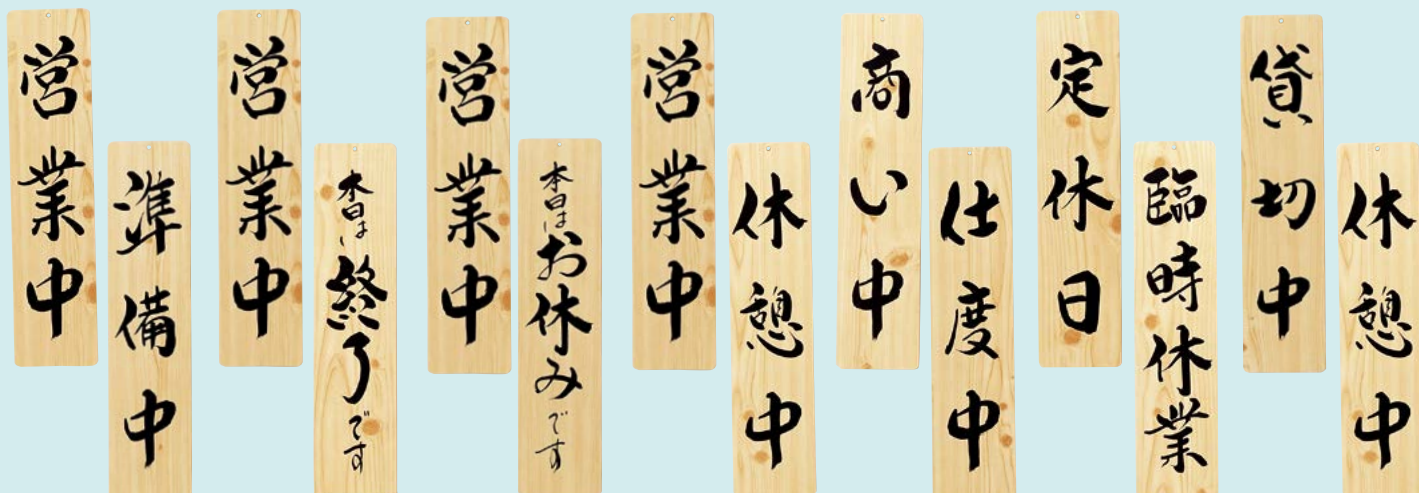 営業中
準備中
営業中
本日は終了です
営業中
本日はお休みです
営業中
休憩中
商い中
仕度中
定休日
臨時休業
貸切中
休憩中